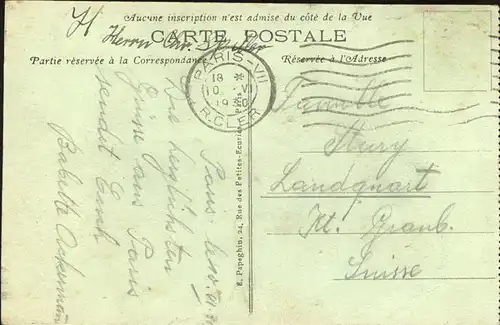 Aucune inscription n'est admise du côté de la Vue
CARTE POSTALE
Partie réservée à la Correspondance
Réservée à l'Adresse
H
Herrn
PARIS-VII
18 *
10 VI
1930
R. CLER
Paris le 10. VI. 30
Die herzlichsten
Grüsse aus Paris
sendet Euch
Babette Ackermann
E. Papeghin, 24, Rue des Petites-Ecuries, Paris
Famille
Landquart
Kt. Graub.
Suisse